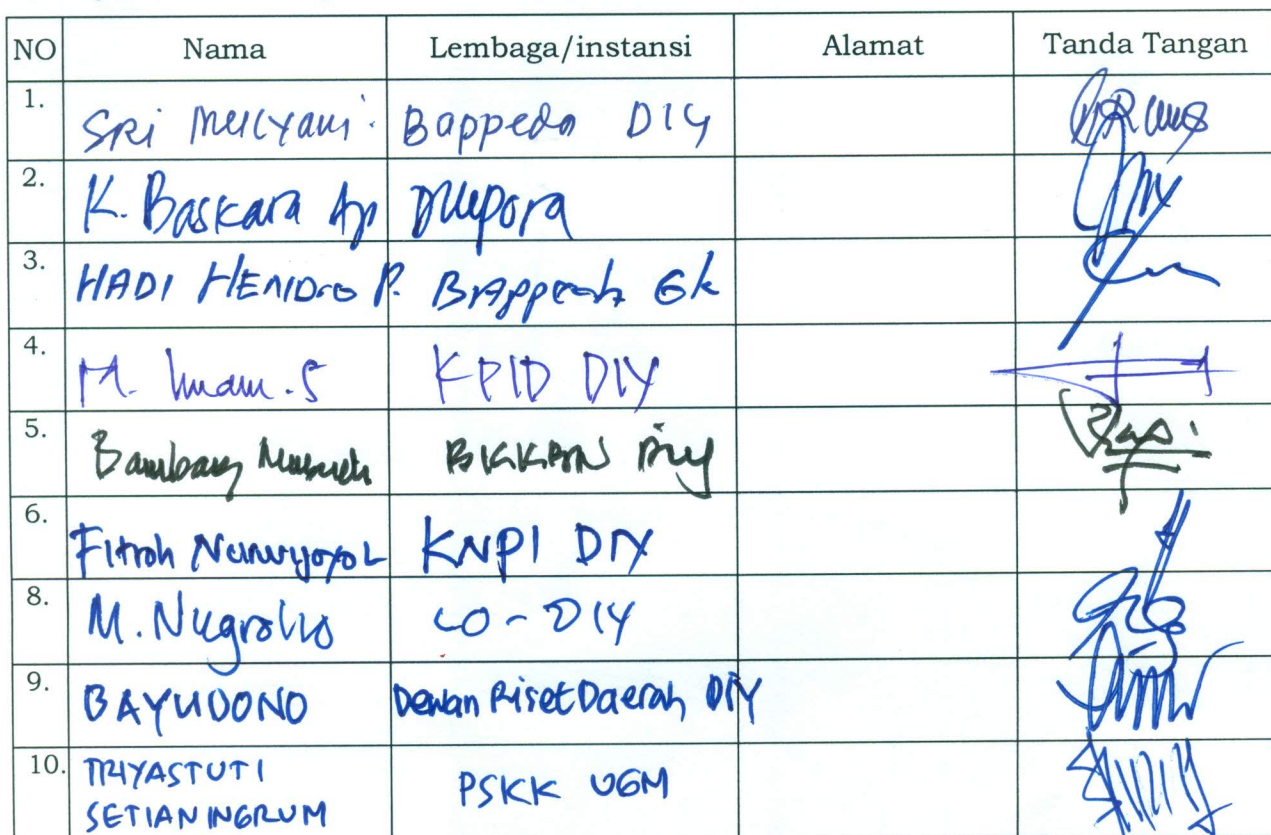 NO Nama Lembaga/instansi Alamat Tanda Tangan
1. SRI MULYANI. Bappeda DIY
2. K. Baskara Ap Dikpora
3. HADI HENDRO P. BAppeda Gk
4. M. Imam.S KPID DIY
5. Bambang BKKBN DIY
6. Fitroh KNPI DIY
8. M. Nugroho LO-DIY
9. BAYUDONO Dewan Riset Daerah DIY
10. TRIYASTUTI PSKK UGM
SETIANINGRUM